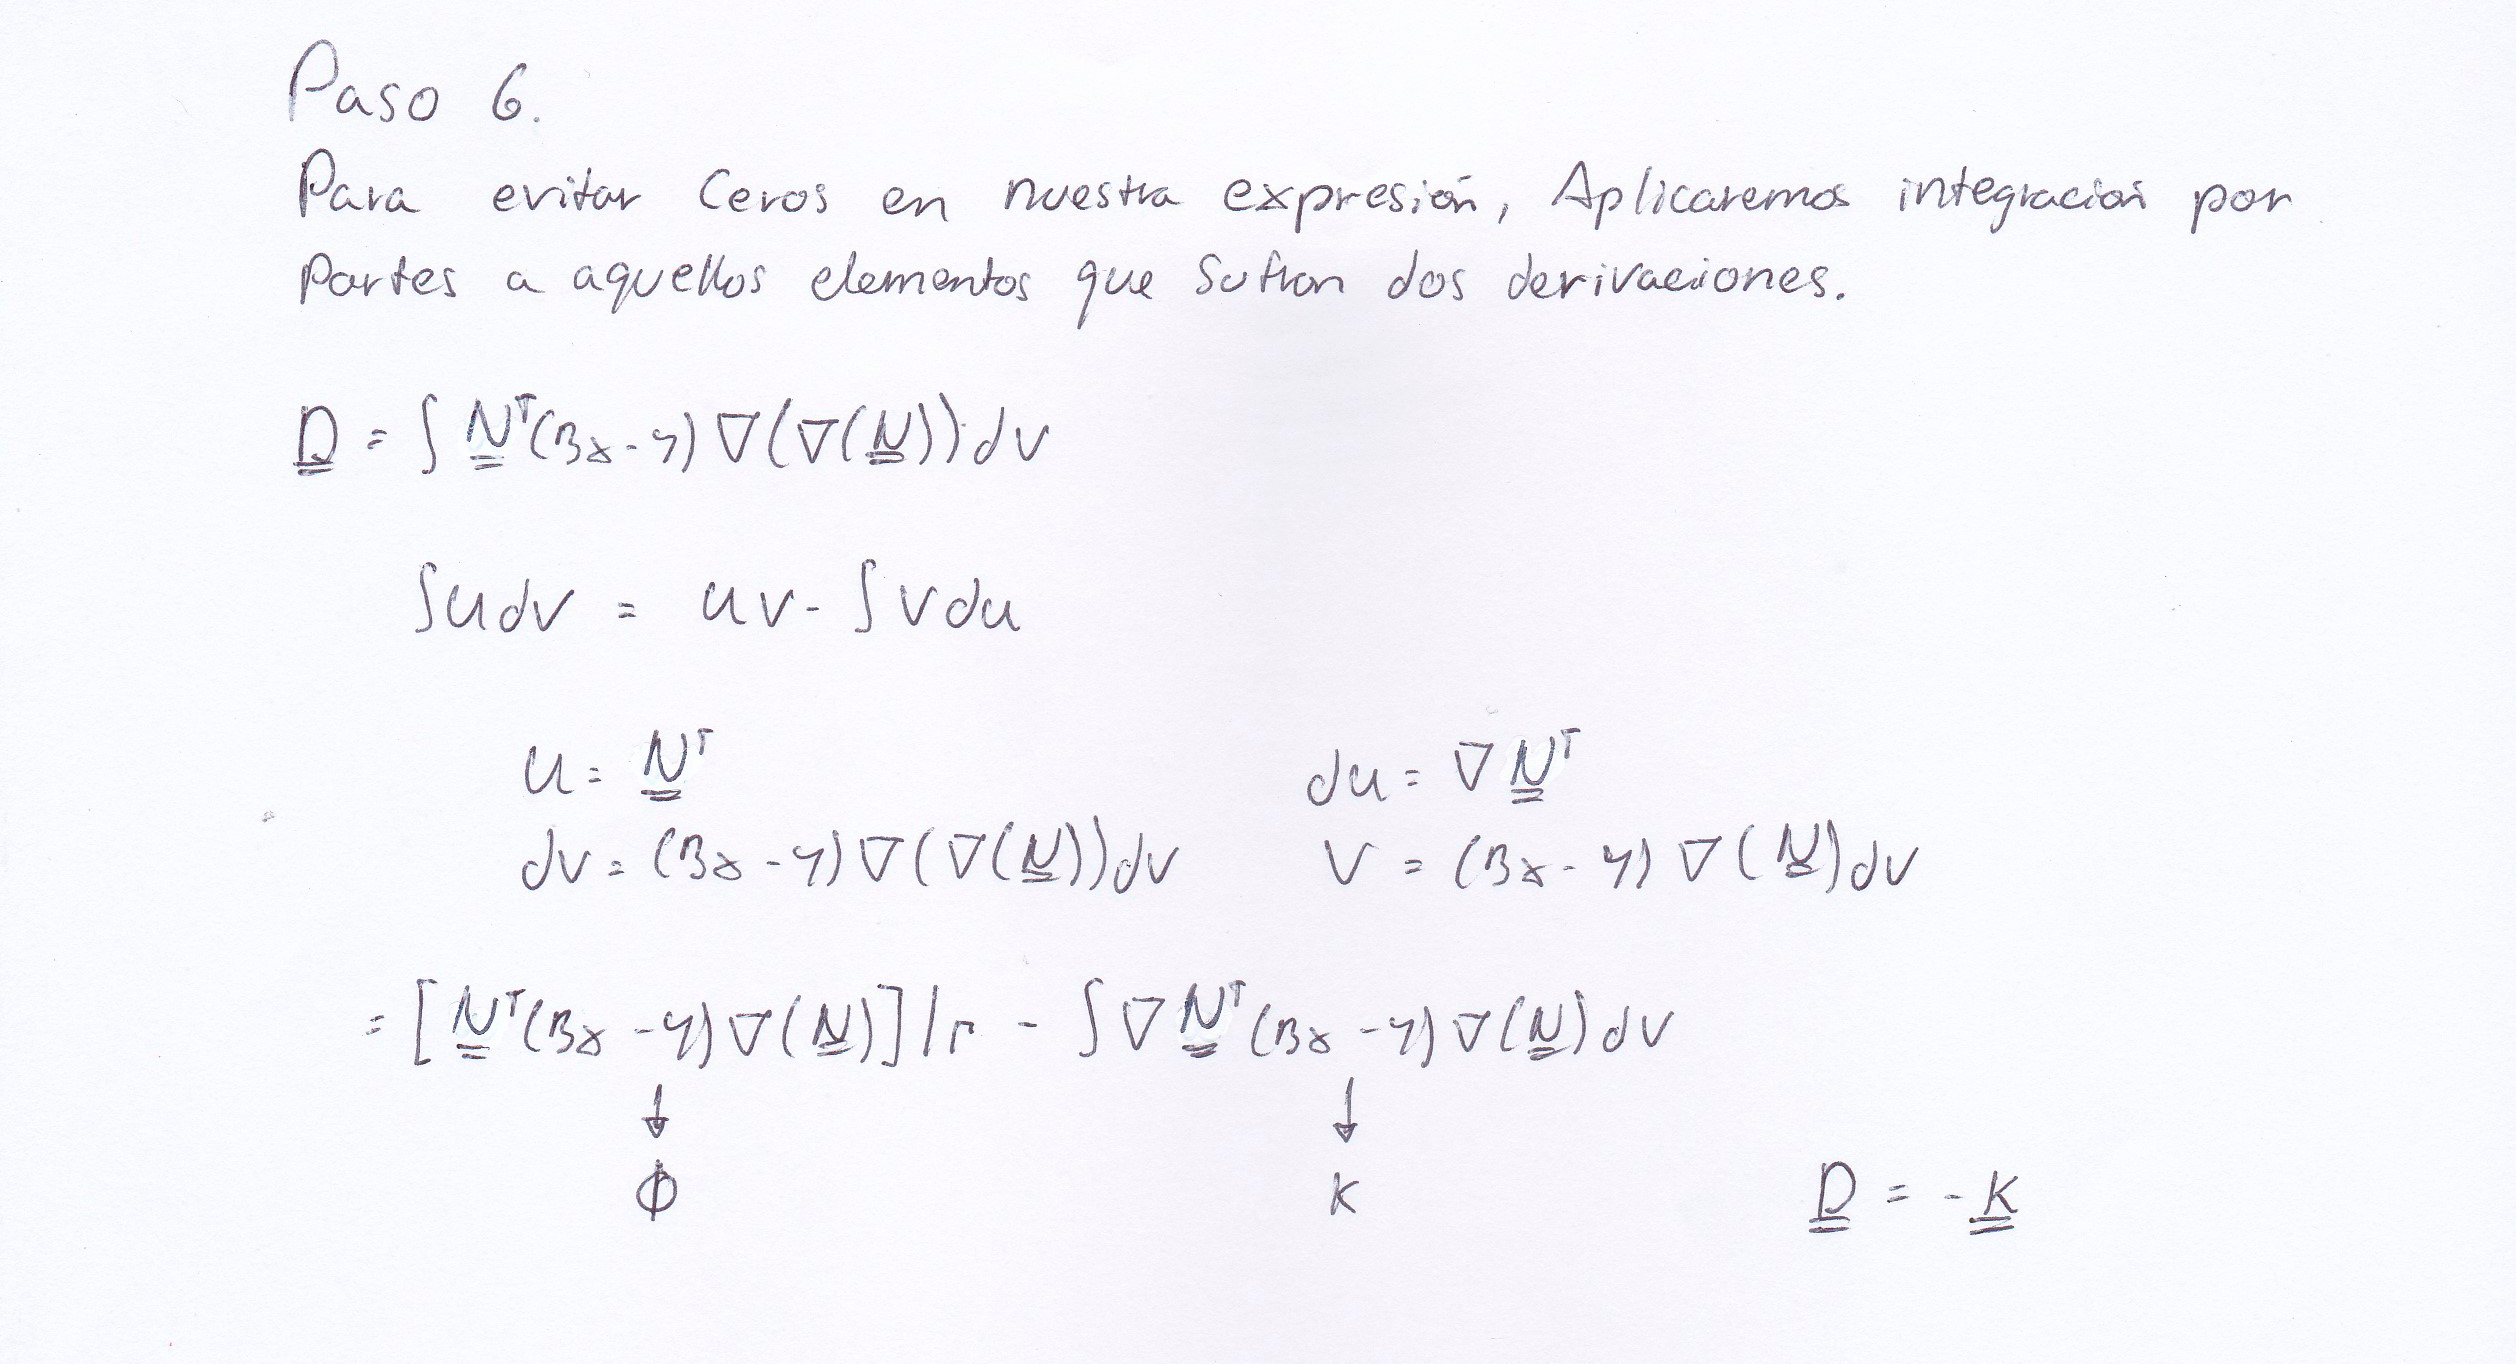 Paso 6.
Para evitar Ceros en nuestra expresión, Aplicaremos integración por
Partes a aquellos elementos que Sufran dos derivaciones.
D = ∫ Nᵀ(3x-4) ∇(∇(N)) dV
∫u dv = uv - ∫v du
u = Nᵀ du = ∇Nᵀ
dv = (3x-4)∇(∇(N))dV V = (3x-4)∇(N)dV
= [Nᵀ(3x-4)∇(N)]|Γ - ∫∇Nᵀ(3x-4)∇(N)dV
↓ ↓
ϕ K D = -K